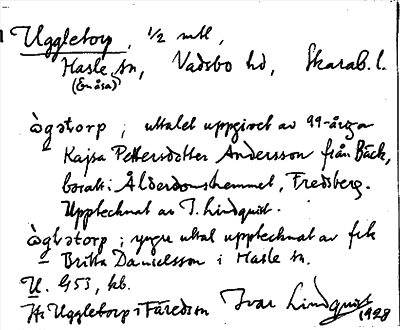 Uggletorp, 1/2 mtl,
Hasle sn, Vadsbo hd, Skarab. l.
(Enåsa)
ògətorp ; uttalet uppgivet av 99-åriga
Kajsa Pettersdotter Andersson från Bäck,
bosatt i Ålderdomshemmet, Fredsberg.
Upptecknat av I. Lindquist.
òglətorp ; yngre uttal upptecknat av frk
Britta Danielsson i Hasle sn.
U. 1/4 53, kb.
Jfr Uggletorp i Färed sn Ivar Lindquist
1928